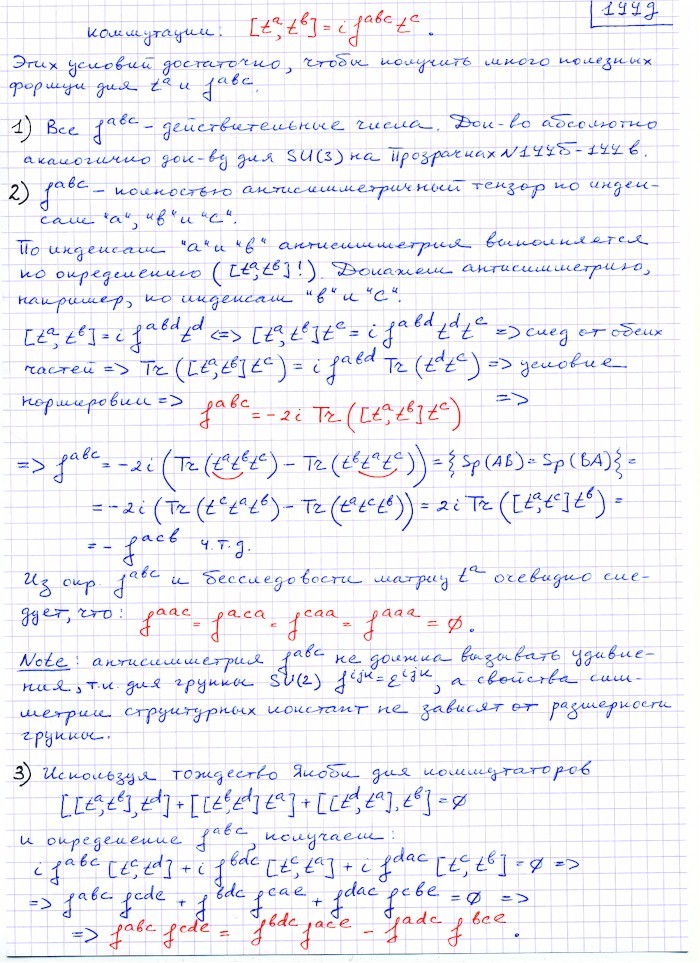 144д
коммутации: [tᵃ, tᵇ] = i fᵃᵇᶜ tᶜ.
Этих условий достаточно, чтобы получить много полезных
формул для tᵃ и fᵃᵇᶜ.
1) Все fᵃᵇᶜ – действительные числа. Док-во абсолютно
аналогично док-ву для SU(3) на Прозрачках N144б-144в.
2) fᵃᵇᶜ – полностью антисимметричный тензор по индек-
сам "a", "в" и "c".
По индексам "a" и "в" антисимметрия выполняется
по определению ([tᵃ, tᵇ]!). Докажем антисимметрию,
например, по индексам "в" и "c".
[tᵃ, tᵇ] = i fᵃᵇᵈ tᵈ <=> [tᵃ, tᵇ] tᶜ = i fᵃᵇᵈ tᵈ tᶜ => след от обеих
частей => Tr([tᵃ, tᵇ] tᶜ) = i fᵃᵇᵈ Tr(tᵈ tᶜ) => условие
нормировки => fᵃᵇᶜ = -2i Tr([tᵃ, tᵇ] tᶜ) =>
=> fᵃᵇᶜ = -2i (Tr(tᵃ tᵇ tᶜ) - Tr(tᵇ tᵃ tᶜ)) = {Sp(AB) = Sp(BA)} =
= -2i (Tr(tᶜ tᵃ tᵇ) - Tr(tᵃ tᶜ tᵇ)) = 2i Tr([tᵃ, tᶜ] tᵇ) =
= - fᵃᶜᵇ ч.т.д.
Из опр. fᵃᵇᶜ и бесследовости матриц tᵃ очевидно сле-
дует, что: fᵃᵃᶜ = fᵃᶜᵃ = fᶜᵃᵃ = fᵃᵃᵃ = ∅.
Note: антисимметрия fᵃᵇᶜ не должна вызывать удивле-
ния, т.к. для группы SU(2) fⁱʲᵏ = εⁱʲᵏ, а свойства сим-
метрии структурных констант не зависят от размерности
группы.
3) Используя тождество Якоби для коммутаторов
[[tᵃ, tᵇ], tᵈ] + [[tᵇ, tᵈ] tᵃ] + [[tᵈ, tᵃ], tᵇ] = ∅
и определение fᵃᵇᶜ, получаем:
i fᵃᵇᶜ [tᶜ, tᵈ] + i fᵇᵈᶜ [tᶜ, tᵃ] + i fᵈᵃᶜ [tᶜ, tᵇ] = ∅ =>
=> fᵃᵇᶜ fᶜᵈᵉ + fᵇᵈᶜ fᶜᵃᵉ + fᵈᵃᶜ fᶜᵇᵉ = ∅ =>
=> fᵃᵇᶜ fᶜᵈᵉ = fᵇᵈᶜ fᵃᶜᵉ - fᵃᵈᶜ fᵇᶜᵉ.